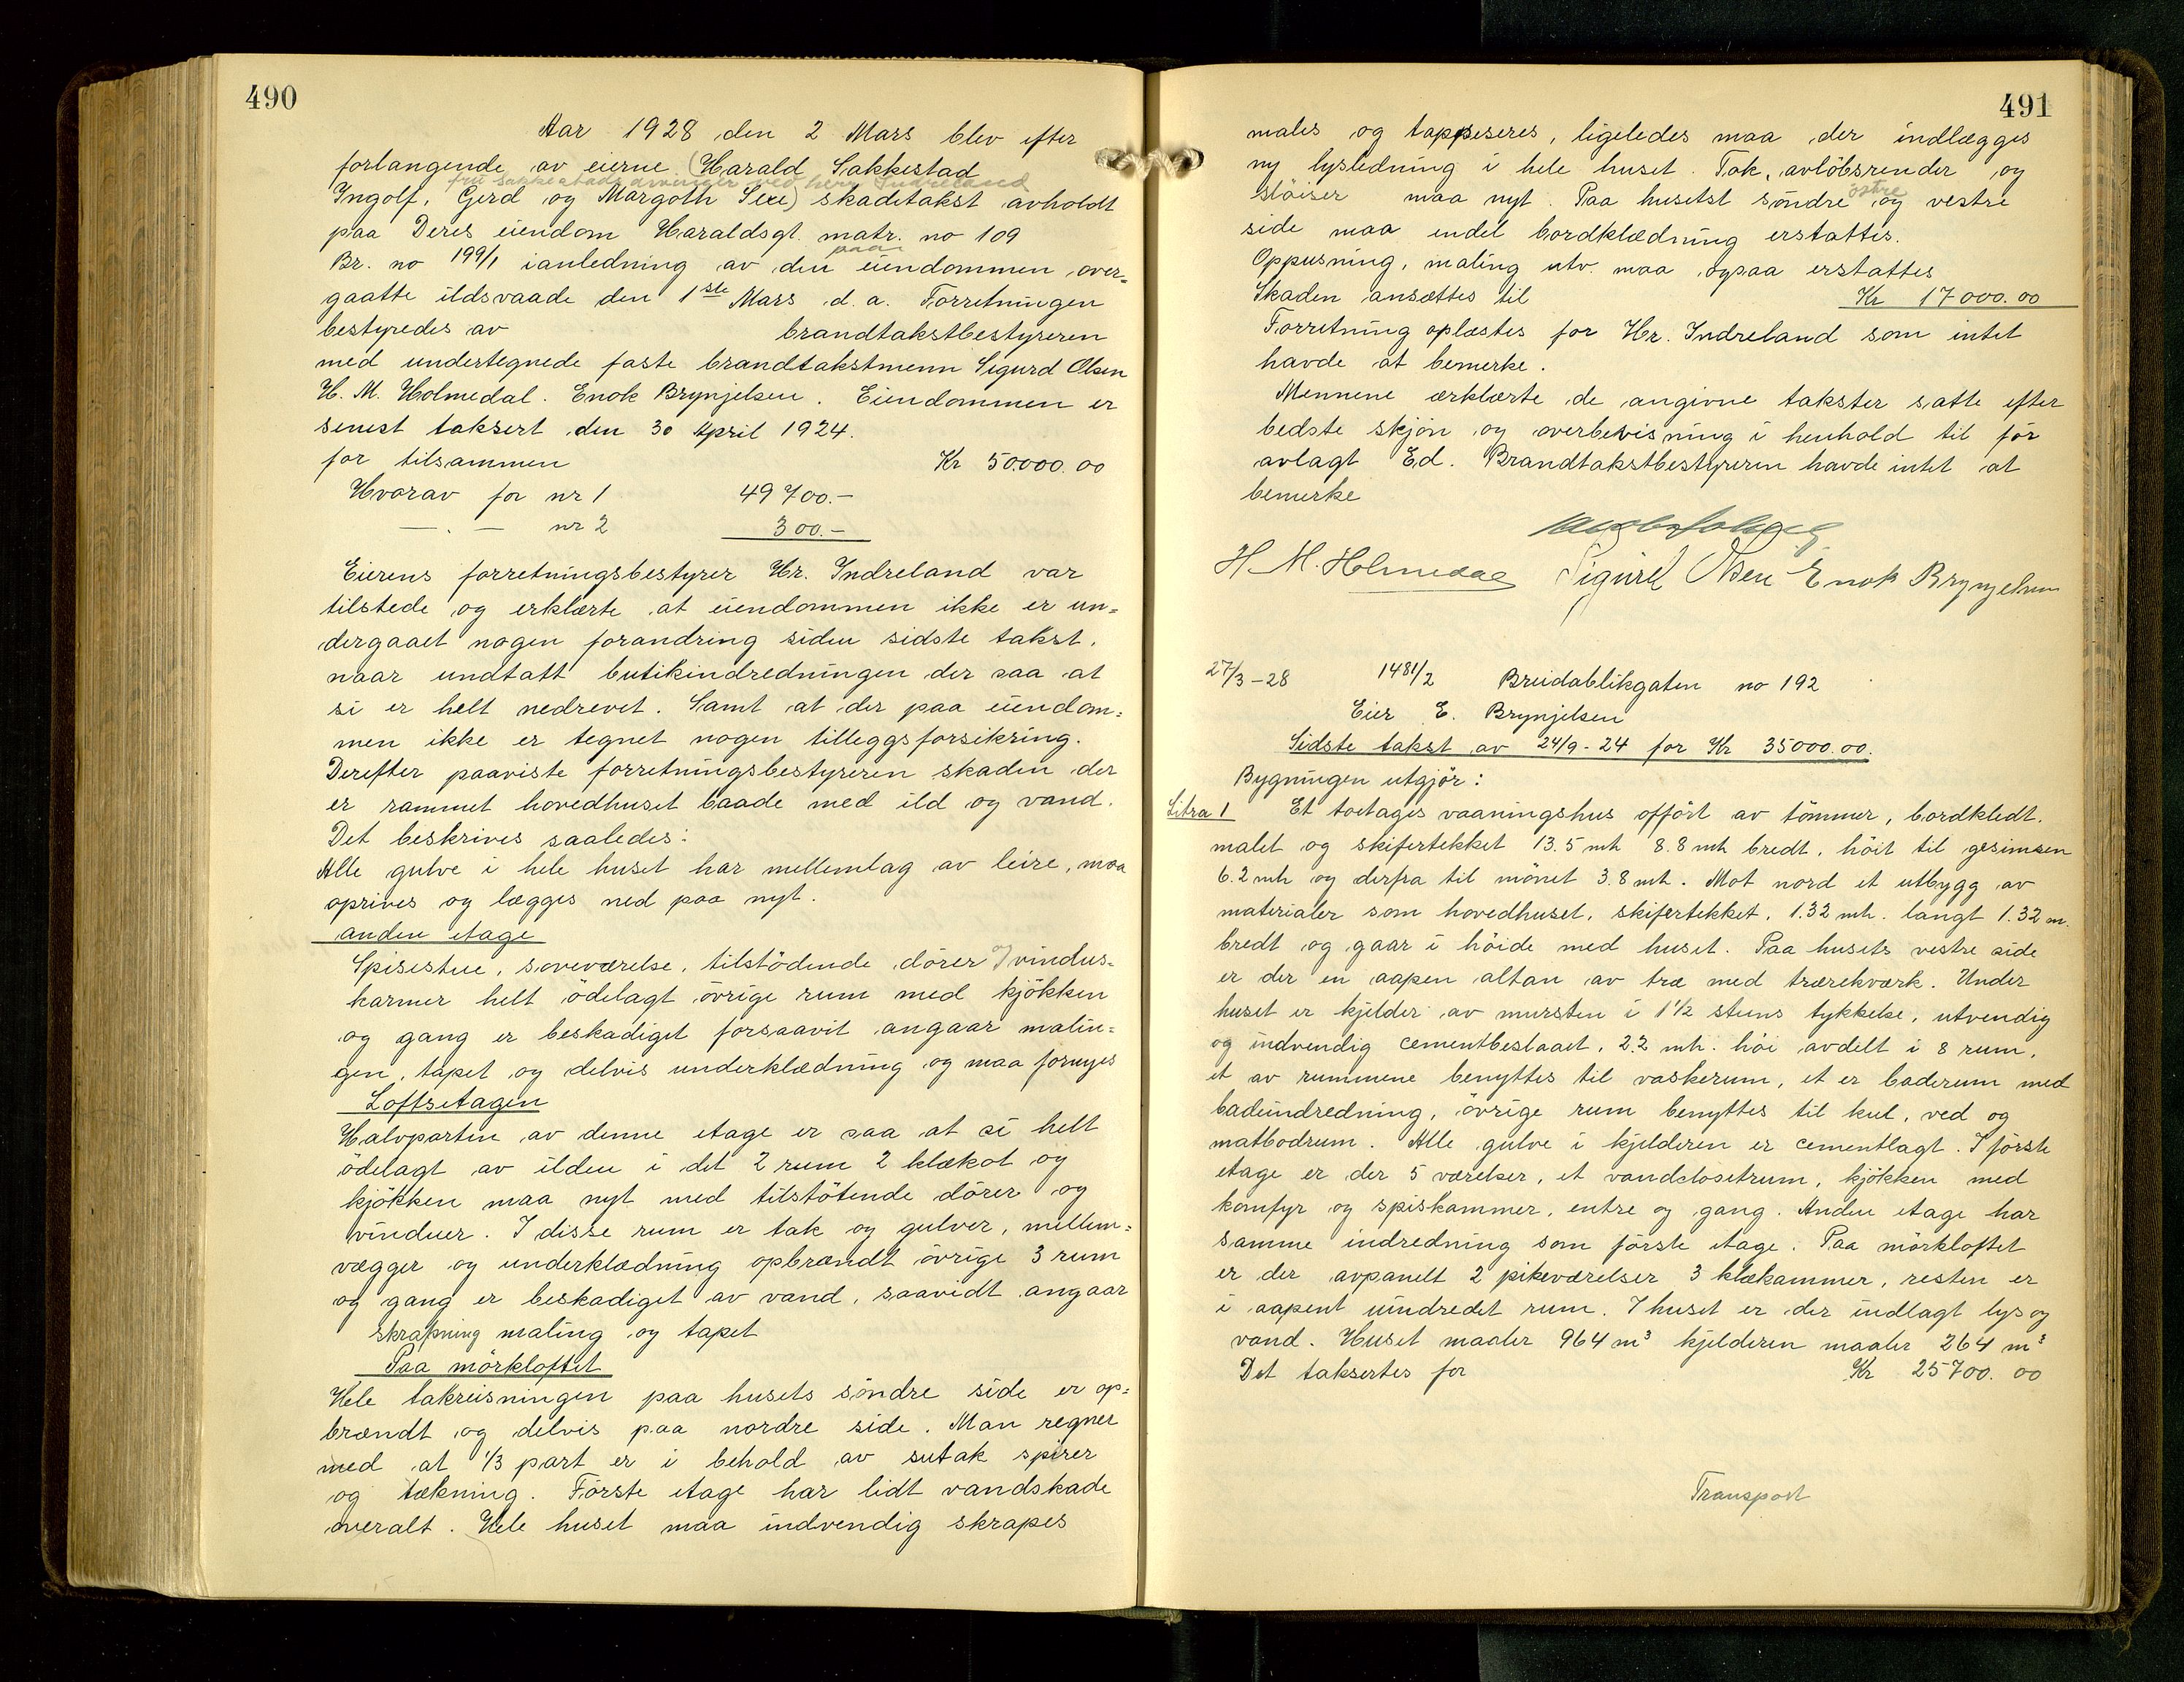 490
Aar 1928 den 2 Mars blev efter
forlangende av eierne (Harald Sakkestad
fru Sakkestads arvinger ved herr Indreland
Ingolf, Gerd og Margoth Sexe) skadetakst avholdt
paa Deres eiendom Haraldsgt. matr. no 109
paa
Br. no 199/1 ianledning av den eiendommen over=
gaatte ildsvaade den 1ste Mars d.a. Forretningen
bestyredes av brandtakstbestyreren
med undertegnede faste brandtakstmenn Sigurd Olsen
H. M. Holmedal. Enok Brynjelsen. Eiendommen er
senest taksert den 30 April 1924.
for tilsammen Kr 50000.00
Hvorav for nr 1 49700.-
— . — nr 2 300.-
Eierens forretningsbestyrer Hr. Indreland var
tilstede og erklærte at eiendommen ikke er un=
dergaaet nogen forandring siden sidste takst.
naar undtatt butikindredningen der saa at
si er helt nedrevet. Samt at der paa eiendom=
men ikke er tegnet nogen tilleggsforsikring.
Derefter paaviste forretningsbestyreren skaden der
er rammet hovedhuset baade med ild og vand.
Det beskrives saaledes:
Alle gulve i hele huset har mellemlag av leire, maa
oprives og lægges ned paa nyt.
anden etage
Spisestue, soveværelse, tilstödende dörer og vindus=
karmer helt ödelagt övrige rum med kjökken
og gang er beskadiget forsaavit angaar malin=
gen, tapet og delvis underklædning og maa fornyes
Loftsetagen
Halvparten av denne etage er saa at si helt
ödelagt av ilden i det 2 rum 2 klækot og
kjökken maa nyt med tilstötende dörer og
vinduer. I disse rum er tak og gulver, mellem=
vægger og underklædning opbrændt övrige 3 rum
og gang er beskadiget av vand, saavidt angaar
skrapning maling og tapet
Paa mörkloftet
Hele takreisningen paa husets söndre side er op=
brændt og delvis paa nordre side. Man regner
med at 1/3 part er i behold av sutak spirer
og tækning. Förste etage har lidt vandskade
overalt. Hele huset maa indvendig skrapes
491
males og tappeseres, ligeledes maa der indlægges
ny lysledning i hele huset. Tak, avlöbsrender og
östre
stöiser maa nyt. Paa husetst söndre og vestre
side maa endel bordklædning erstattes.
Oppusning, maling utv. maa ogsaa erstattes
Skaden ansættes til Kr 17000.00
Forretning oplæstes for Hr. Indreland som intet
havde at bemerke.
Mennene ærklærte de angivne takster satte efter
bedste skjön og overbevisning i henhold til för
avlagt Ed. Brandtakstbestyreren havde intet at
bemerke
H. M. Holmedal Sigurd Olsen Enok Brynjelsen
27/3-28 1481/2 Breidablikgaten no 192
Eier E. Brynjelsen
Sidste takst av 24/9-24 for Kr 35000.00.
Bygningen utgjör:
Litra 1 Et toetages vaaningshus offört av tömmer, bordkledt.
malet og skifertekket 13.5 mh 8.8 mh bredt, höit til gesimsen
6.2 mh og derfra til mönet 3.8 mh. Mot nord et utbygg av
materialer som hovedhuset, skifertekket, 1.32 mh. langt 1.32 m.
bredt og gaar i höide med huset. Paa husets vestre side
er der en aapen altan av træ med trærekværk. Under
huset er kjelder av mursten i 1 1/2 stens tykkelse, utvendig
og indvendig cementbeslaaet, 2.2 mh. höi avdelt i 8 rum,
et av rummene benyttes til vaskerum, et er baderum med
badeindredning, övrige rum benyttes til kul, ved og
matbodrum. Alle gulve i kjelderen er cementlagt. I förste
etage er der 5 værelser, et vandclosetrum, kjökken med
komfyr og spiskammer, entre og gang. Anden etage har
samme indredning som förste etage. Paa mörkloftet
er der avpanelt 2 pikeværelser 3 klækammer, resten er
i aapent uindredet rum. I huset er der indlagt lys og
vand. Huset maaler 964 m³ kjelderen maaler 264 m³
Det taksertes for Kr 25700.00
Transport